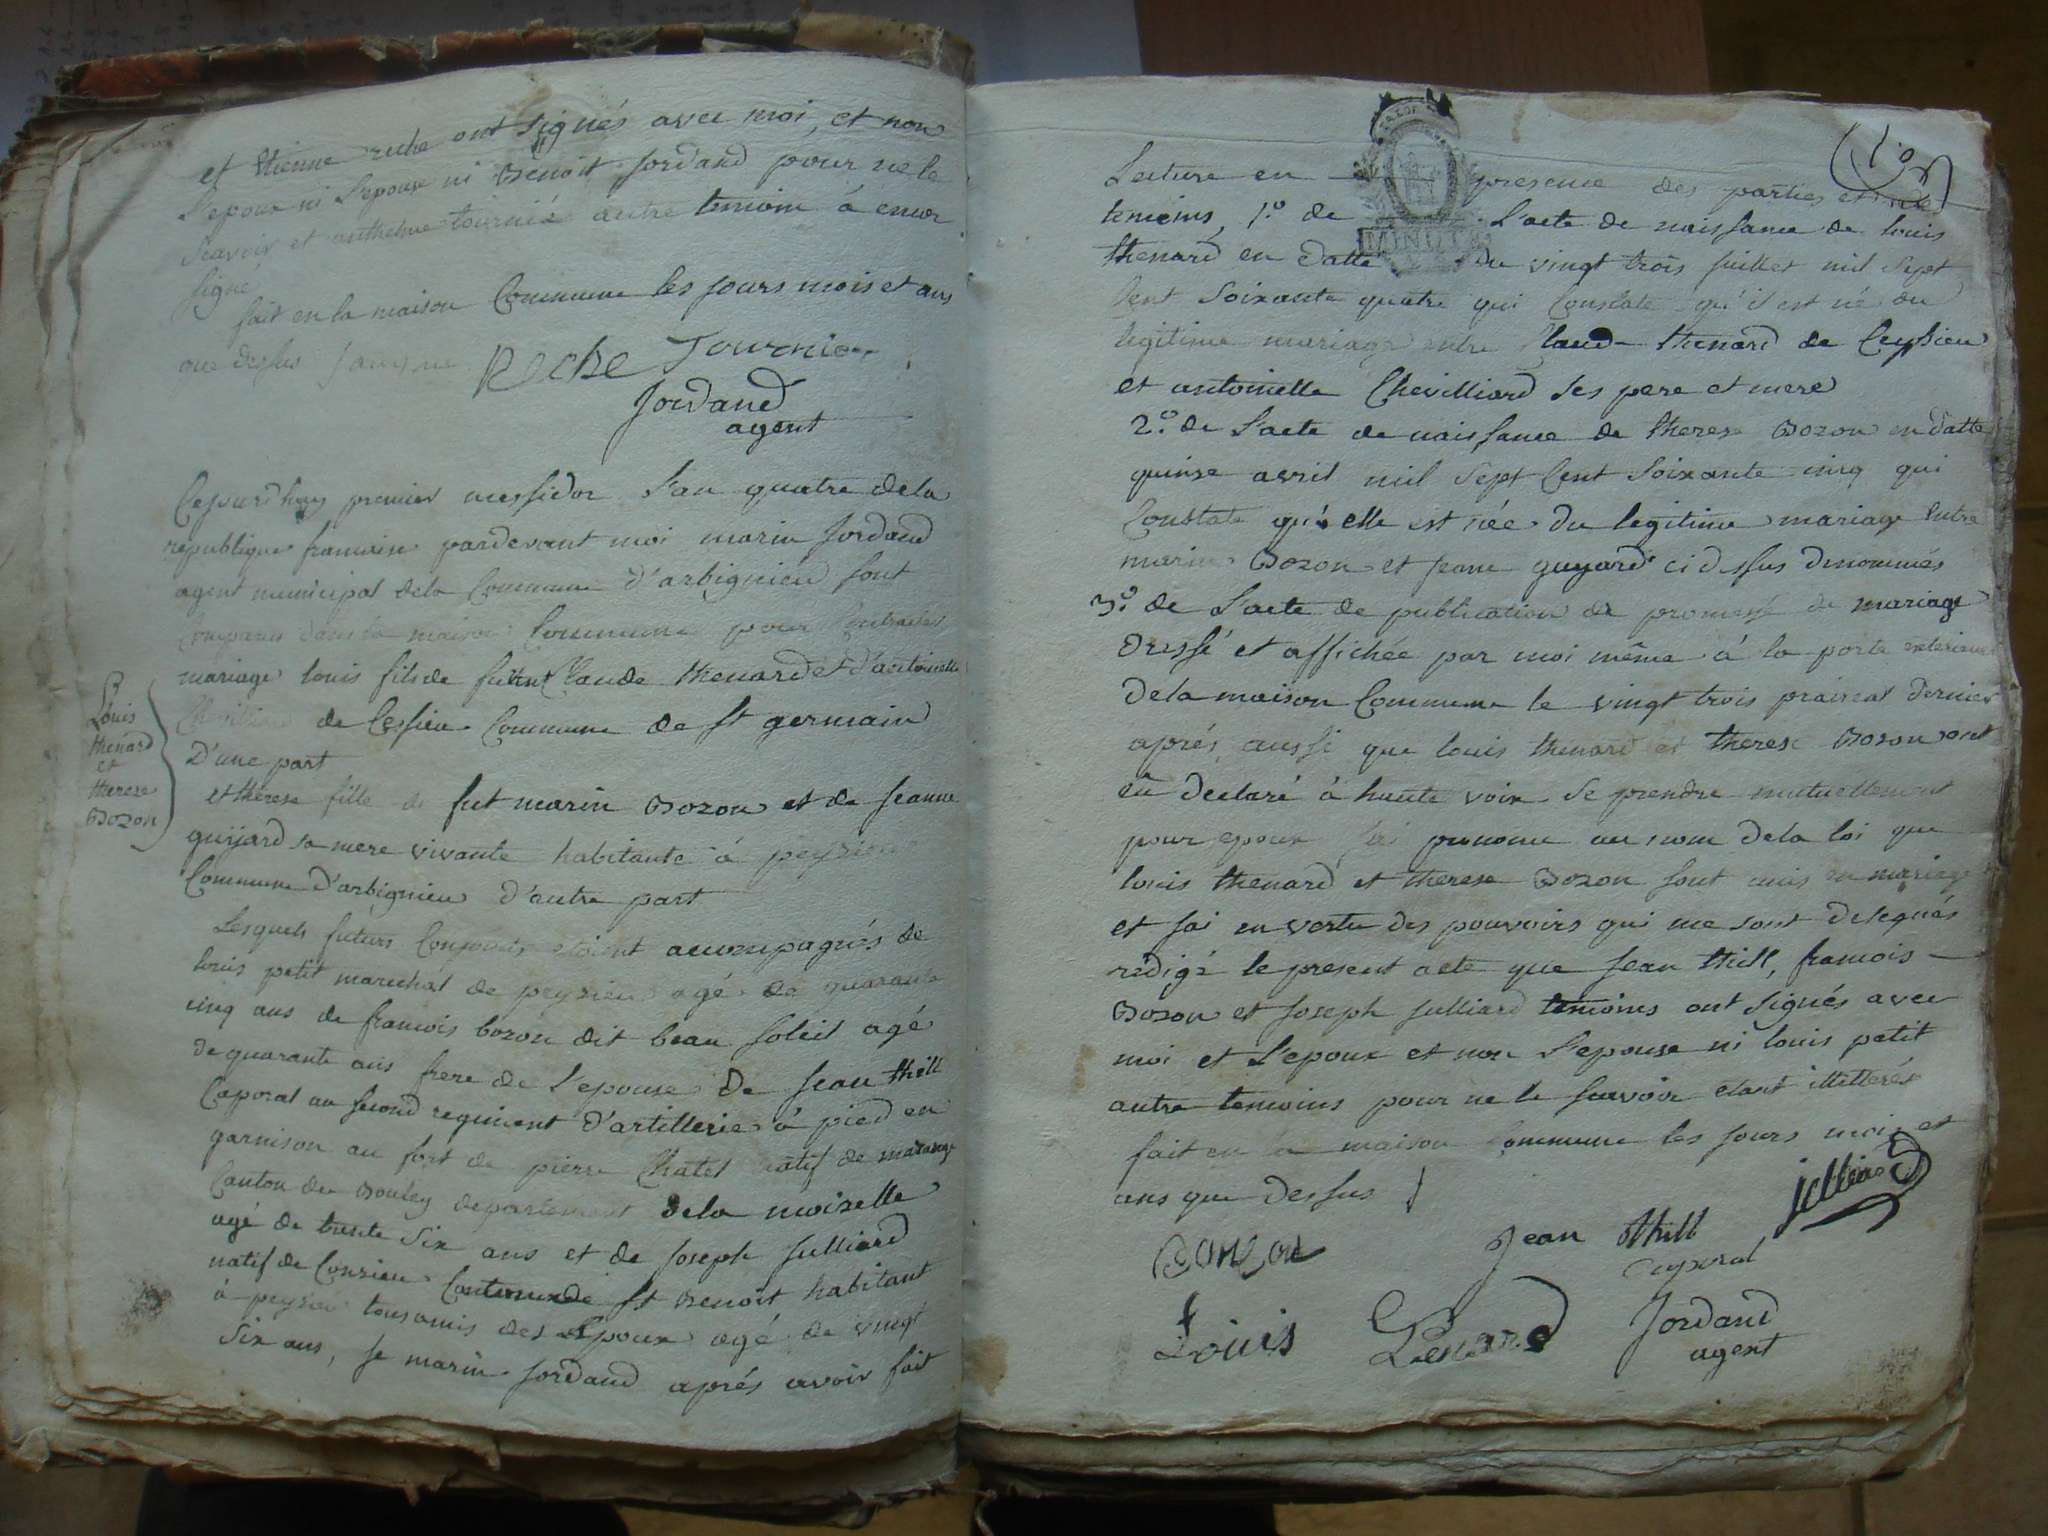 et etienne roche ont signés avec moi, et non
l'epoux ni l'epouse ni Benoit Jordand pour ne le
scavoir et anthelme tournié autre temoin à encor
signé
fait en la maison Commune les jours mois et ans
que dessus
Roche Tournier
Jordand
agent
Cejourdhuy premier messidor l'an quatre dela
republique francoise pardevant moi marin Jordand
agent municipal dela Commune d'arbignieu sont
Comparus dans la maison Commune pour Contracter
mariage louis fils de fut Claude thenard et d'antoinette
de Cessieu Commune de st germain
D'une part
et therese fille de fut marin Bozon et de jeanne
guyard sa mere vivante habitante à peyzieu
Commune D'arbignieu d'autre part
Louis
thenard
et
therese
Bozon
Lesquels futurs Conjoints etoient accompagnés de
louis petit marechal de peyzieu agé de quarante
cinq ans de francois bozon dit beau soleil agé
de quarante ans frere de l'epouse de Jean thill
Caporal au second regiment d'artillerie à pied en
garnison au fort de pierre Chatel natif de
Canton de Bouley departement dela moizelle
agé de trente six ans et de Joseph Julliard
natif de Conzieu Canton de st Benoit habitant
à peyzieu tous amis des Epoux agé de vingt
six ans, Je marin Jordand aprés avoir fait
Lecture en presence des parties et
temoins, 1.º de l'acte de naissance de louis
MINUTE
thenard en datte du vingt trois juillet mil sept
Cent soixante quatre qui Constate qu'il est né du
legitime mariage entre Claude thenard de Ceyssieu
et antoinette Chevilliard ses pere et mere
2.º de l'acte de naissance de therese Bozon en datte
quinze avril mil sept Cent soixante cinq qui
Constate qu'elle est née du legitime mariage entre
marin Bozon et jeane guyard ci dessus denommés
3.º de l'acte de publication de promesse de mariage
dressé et affichée par moi même à la porte exterieure
dela maison Commune le vingt trois prairéal dernier
aprés aussi que louis thenard et therese Bozon ont
eu declaré à haute voix se prendre mutuellement
pour epoux jai prononcé au nom dela loi que
louis thenard et therese Bozon sont unis en mariage
et jai en vertu des pouvoirs qui me sont delegués
redigé le present acte que Jean thill, francois
Bozon et Joseph Julliard temoins ont signés avec
moi et l'epoux et non l'epouse ni louis petit
autre temoins pour ne le scavoir etant illitterés
fait en la maison Commune les jours mois et
ans que dessus
julliard
Jean thill
Caporal
Louis
Jordand
agent